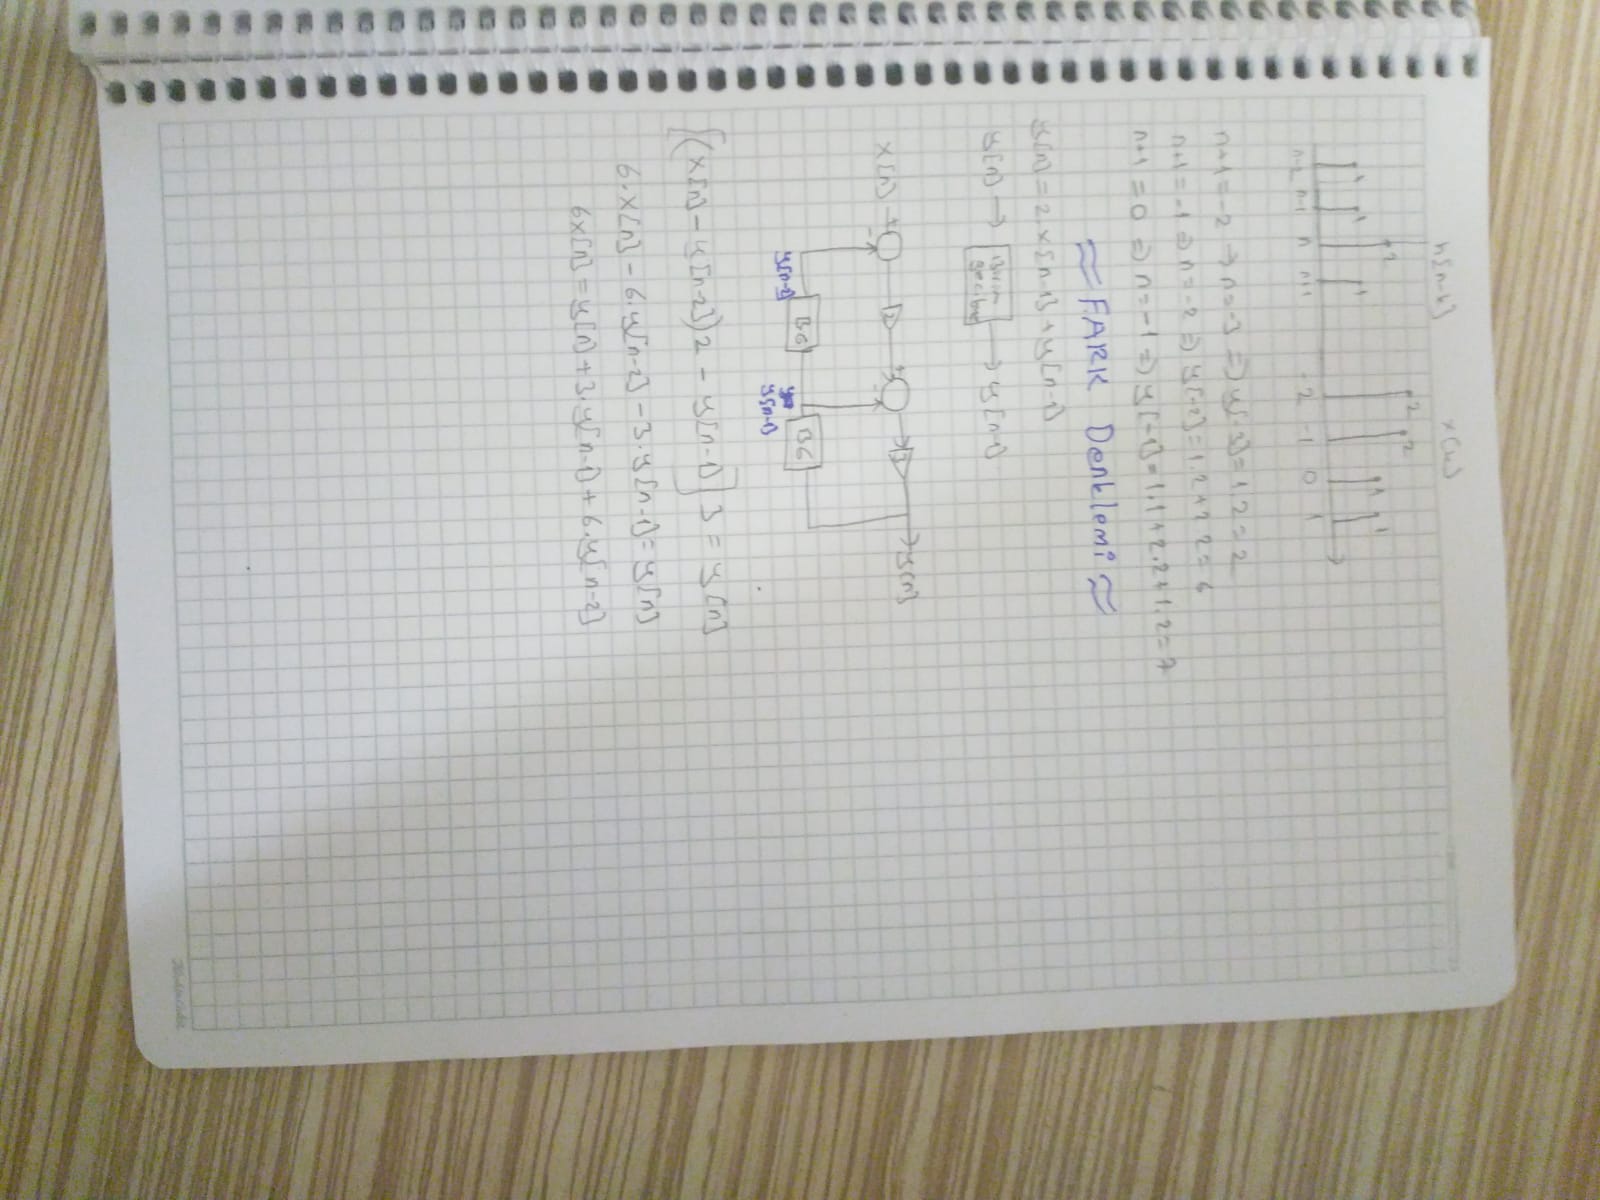 h[n-k] x[k]
1 1 2 1 2 2 1 1
n-2 n-1 n n+1 -2 -1 0 1
n+1=-2 → n=-3 => y[-3]=1.2=2
n+1=-1 => n=-2 => y[-2]=1.2+2.2=6
n+1=0 => n=-1 => y[-1]=1.1+2.2+1.2=7
≈ FARK Denklemi ≈
y[n]=2.x[n-1]+y[n-1]
y[n] → Birim → y[n-1]
x[n] + - 2 + - 3 → y[n]
BG BG
y[n-2] y[n-1]
[(x[n]-y[n-2])2 - y[n-1]] 3 = y[n]
6.x[n]-6.y[n-2]-3.y[n-1]=y[n]
6x[n]=y[n]+3.y[n-1]+6.y[n-2]